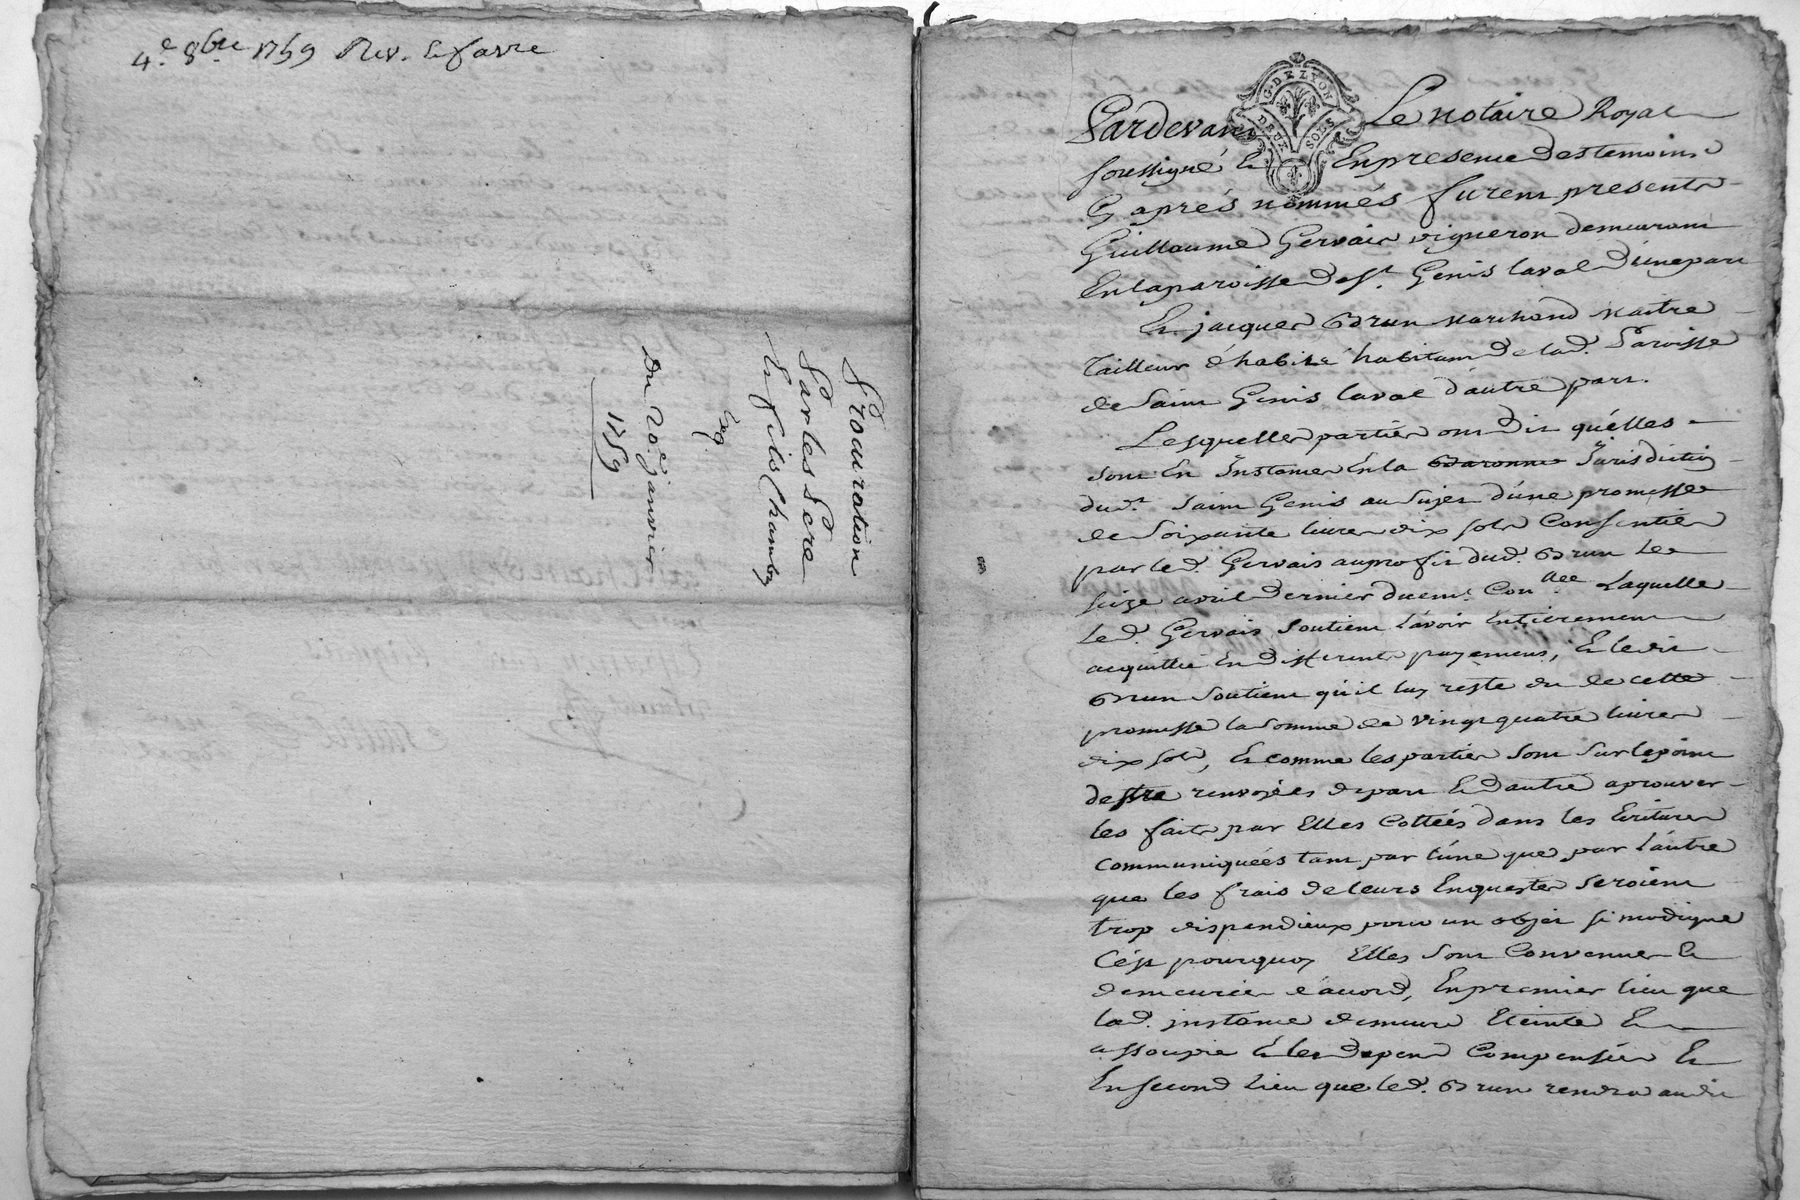 4.e 8bre 1759 Rev. Lefavre
Procuration
Par les Sere
Et fils Chamb
Du 20e janvier
1759
G. DE LYON
DEUX SOLS
Pardevant Le notaire Royal
soussigné Et En presence des temoins
Cy aprés nommés furent presents
Guillaume Gervais vigneron demeurant
En la paroisse de St. Genis laval d'une part
Et jacques Brun Marchand Maitre
Tailleur d'habits habitant de lad. Paroisse
de Saint Genis laval d'autre part.
Lesquelles parties ont dit qu'élles
sont En Instance En la Baronnie Jurisdiction
dudt. Saint Genis au sujet d'une promesse
de soixante livres dix sols Consentie
par led. Gervais au profit dud. Brun le
seize avril dernier duemt. Conllée Laquelle
led. Gervais soutient l'avoir Entierement
acquittée En differents payements, Et ledit
Brun soutient qu'il luy reste du de cette
promesse la somme de vingt quatre livres
dix sols, Et comme les parties sont sur le point
destre renvoyées de part Et dautre a prouver
les faits par Elles Cottées dans les Ecritures
communiquées tant par l'une que par l'autre
que les frais de leurs Enquestes seroient
trop dispendieux pour un objet si modique
C'est pourquoy Elles sont Convenues Et
demeurées d'accord, En premier lieu que
lad. instance demeure Eteinte Et
assoupie Et les depens Compensés Et
En second lieu que led. Brun rendra audit